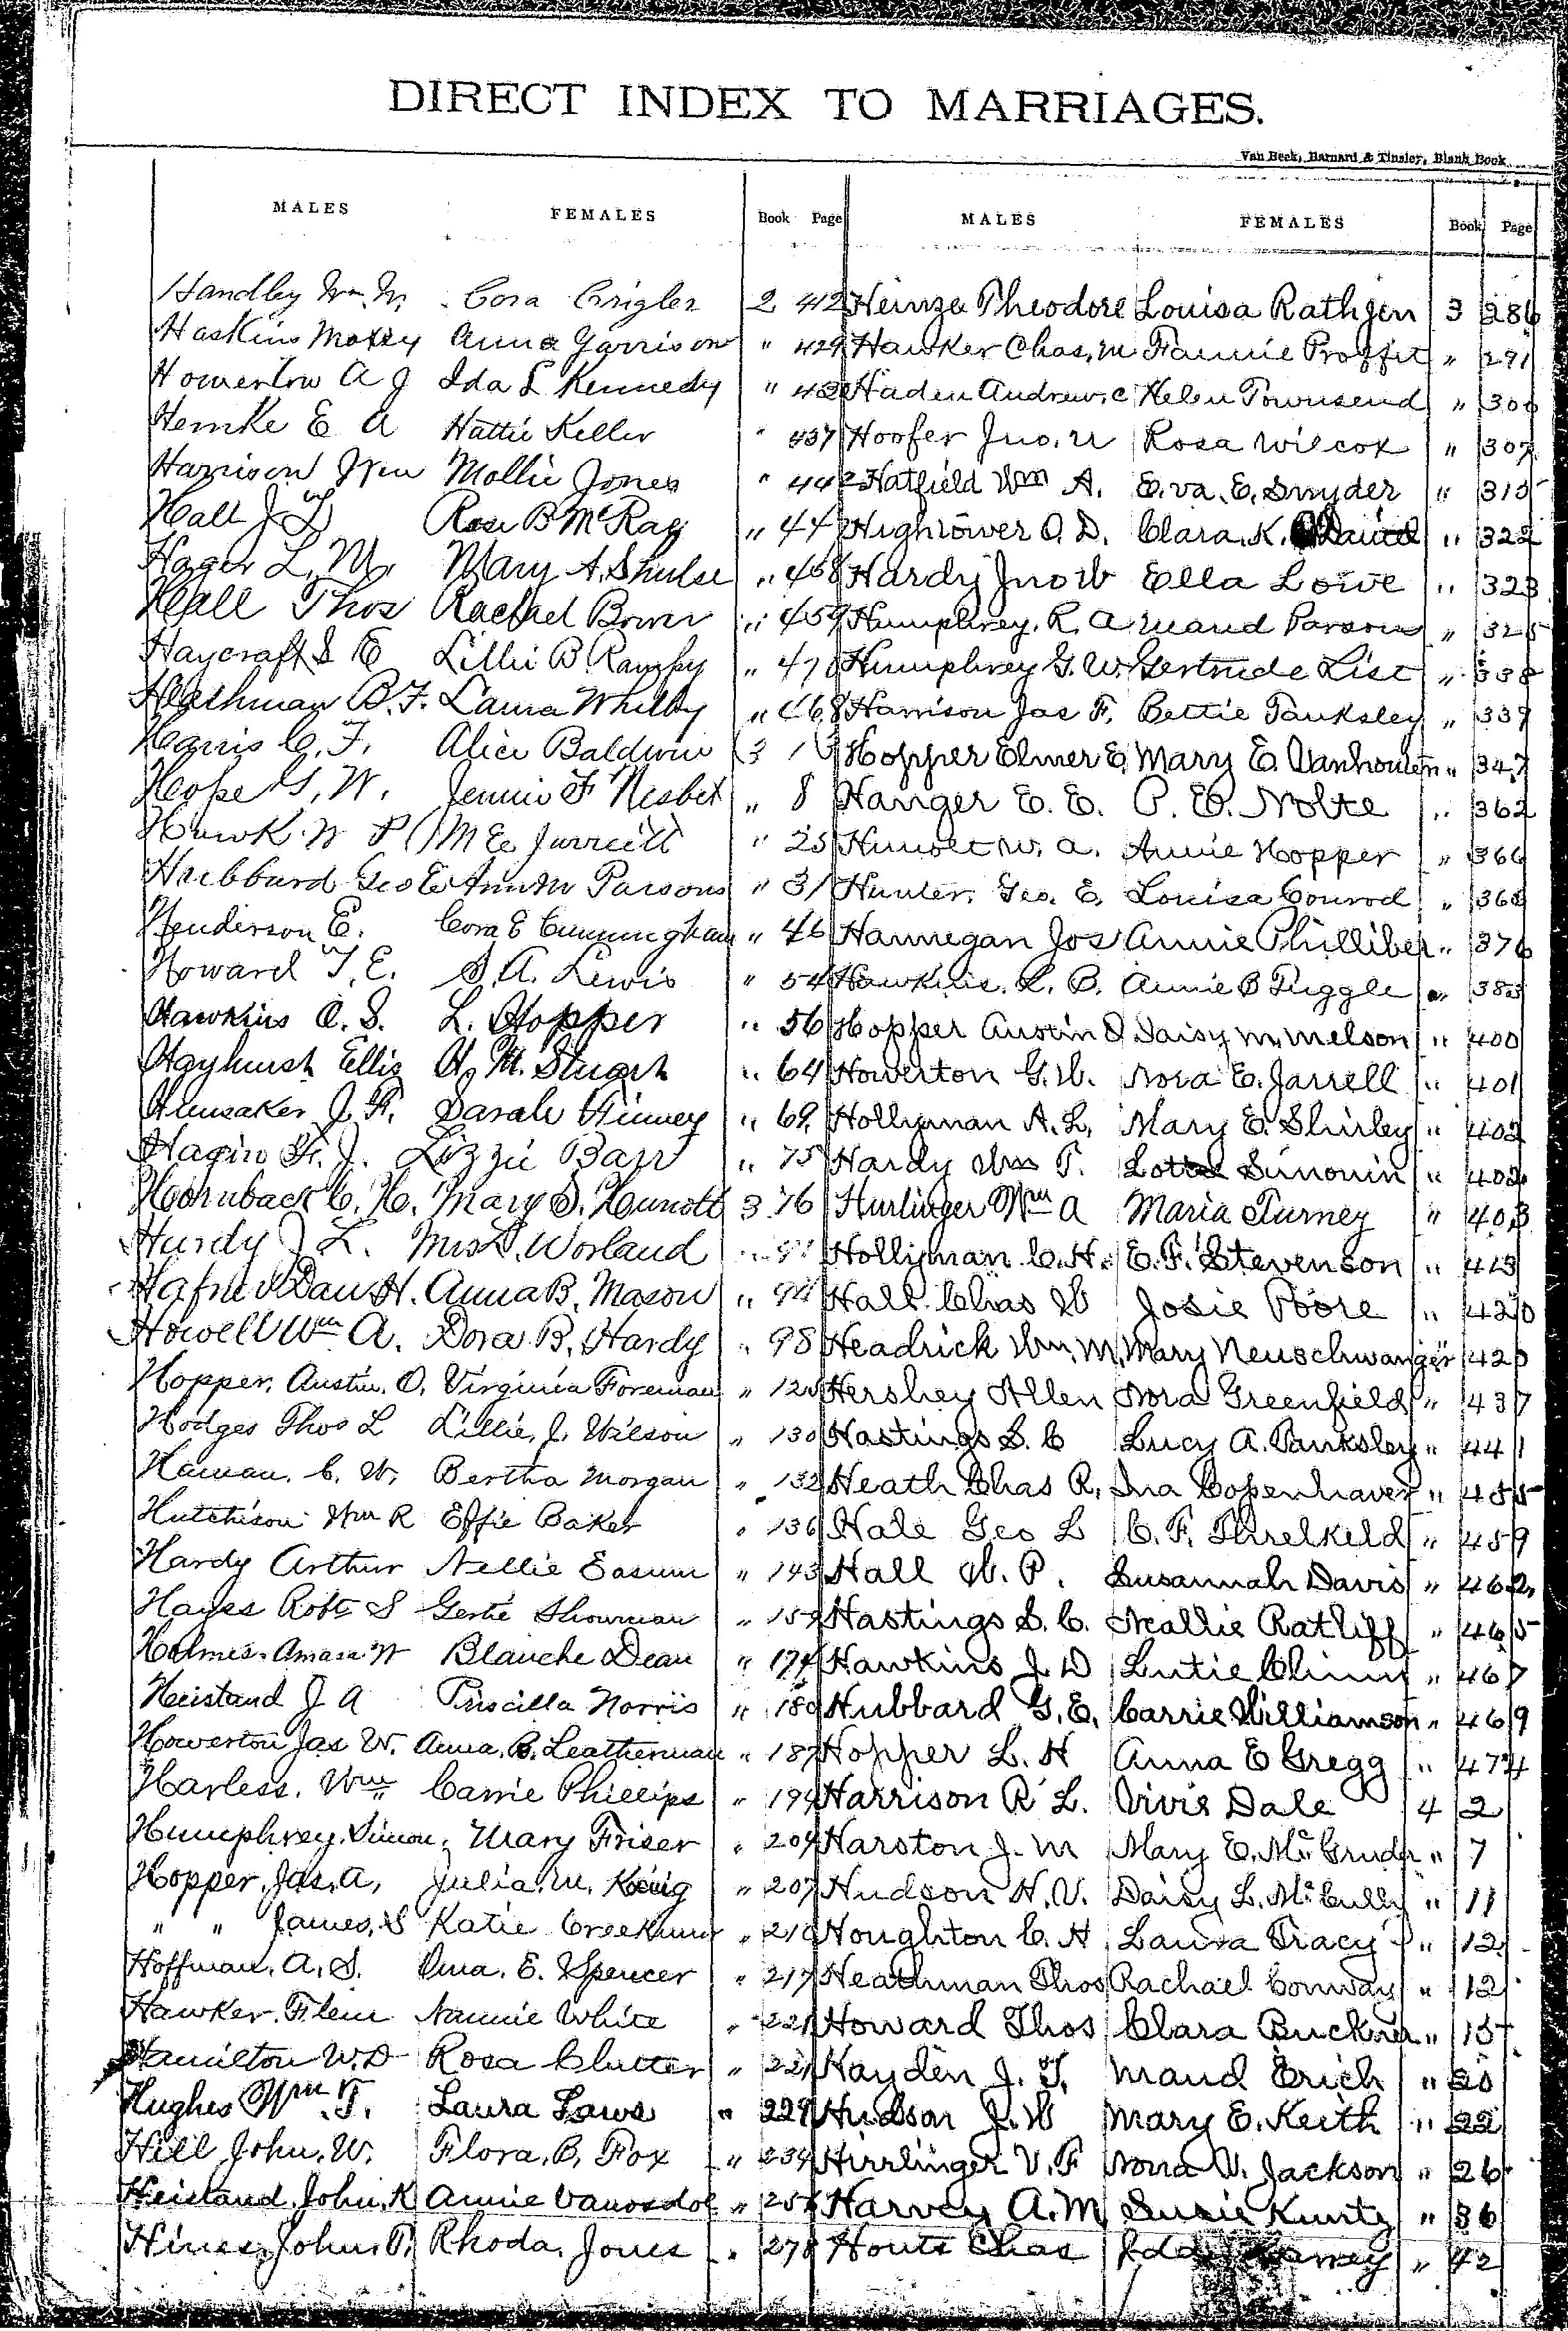 DIRECT INDEX TO MARRIAGES.
Van Beek, Barnard & Tinsley, Blank Book
MALES FEMALES Book Page MALES FEMALES Book Page
Handley Wm. W. Cora Crigler 2 412
Haskins Moxey Anna Garrison " 429
Howerton A J Ida L Kennedy " 432
Hemke E A Hattie Keller " 437
Harrison Wm Mollie Jones " 442
Hall J T Rosa B McRay " 447
Hager L. M. Mary A. Shulse " 458
Hall Thos Rachael Bower " 459
Haycraft S E Lillie B " 470
Hershman B. F. Laura Whitby " 468
Harris C. F. Alice Baldwin 3 1
Hope G. W. Jennie F Nisbet " 8
Hawk W P M E Jarrell " 25
Hubbard Geo E Ann M Parsons " 31
Henderson E. Cora E Cunningham " 46
Howard T. E. S. A. Lewis " 54
Hawkins C. S. L. Hopper " 56
Hayhurst Ellis H. M. Stuart " 64
Hunsaker J. F. Sarah Finney " 69
Hagin F. J. Lizzie Barr " 75
Hornback C. H. Mary S. Hunott 3 76
Hurdy J L. Mrs L. Worland "
Hafner Dan H. Anna B. Mason " 94
Howell Wm A. Dora B. Hardy " 98
Hopper, Austin, O. Virginia Foreman " 125
Hodges Thos L Lillie, J. Wilson " 130
Haman, C. W. Bertha Morgan " 132
Hutchison Wm R Effie Baker " 136
Hardy Arthur Nellie Easum " 143
Hayes Robt S Gertie Showman " 159
Holmes, Amasa W Blanche Dean " 174
Heistand J A Priscilla Norris " 180
Howerton Jas W. Anna, B. Leatherman " 187
Harless, Wm Carrie Phillips " 194
Humphrey, Simon, Mary Friser " 204
Hopper, Jas. A, Julia, M, Koeig " 207
" " James, S Katie Creekmur " 210
Hoffman, A, S. Oma, E. Spencer " 217
Hawker, Flem Nannie White " 221
Hamilton W. D Rosa Clutter " 221
Hughes Wm. T. Laura Laws " 229
Hill, John, W. Flora, B, Fox " 234
Heistand, John, K Annie Vanosdol " 256
Hines, John, P. Rhoda, Jones " 278
Heinze Theodore Louisa Rathjen 3 286
Hawker Chas, M Fannie Proffit " 291
Haden Andrew, C Helen Townsend " 300
Hoofer Jno. N Rosa Wilcox " 307
Hatfield Wm A. Eva. E. Snyder " 315
Hightower O. D. Clara. K. Daniel " 322
Hardy Jno W Ella Lowe " 323
Humphrey, R. A Maud Parsons " 325
Humphrey G. W. Gertrude List " 338
Harrison Jas F. Bettie Tanksley " 339
Hopper Elmer E, Mary E. Vanhouten " 347
Hanger E. E. P. E. Nolte " 362
Hunolt W. A. Annie Hopper " 366
Hunter, Geo. E. Louisa Conrod " 368
Hannegan Jos Annie Philliber " 376
Hawkins, L. B. Annie B Tuggle " 383
Hopper Austin O Daisy M. Melson " 400
Howerton G. W. Nora E. Jarrell " 401
Hollyman A. L, Mary E. Shirley " 402
Hardy Wm T. Lottie Simonin " 402
Hurlinger Wm A Maria Turney " 403
Hollyman C. H. E. F. Stevenson " 413
Hall Chas W Josie Poore " 420
Headrick Wm. M, Mary Neuschwanger 420
Hershey Allen Nora Greenfield " 437
Hastings S. C Lucy A. Tanksley " 441
Heath Chas R, Ina Copenhaver " 455
Hale Geo L C. F. Threlkeld " 459
Hall W. P. Susannah Davis " 462
Hastings S. C. Neallie Ratliff " 465
Hawkins J. D Lutie Chinn " 467
Hubbard G. E, Carrie Williamson " 469
Hopper L. H Anna E Gregg " 474
Harrison R L. Virvie Dale 4 2
Harston J. M Mary E. McGruder " 7
Hudson H. V. Daisy L. McCully " 11
Houghton C. H Laura Tracy " 12
Heathman Thos Rachael Conway " 12
Howard Thos Clara Buckner " 15
Hayden J. T. Maud Erich " 20
Hudson J. W Mary E. Keith " 22
Hirrlinger V. F Nora V. Jackson " 26
Harvey A. M Susie Kuntz " 36
Houts Chas Ida " 42